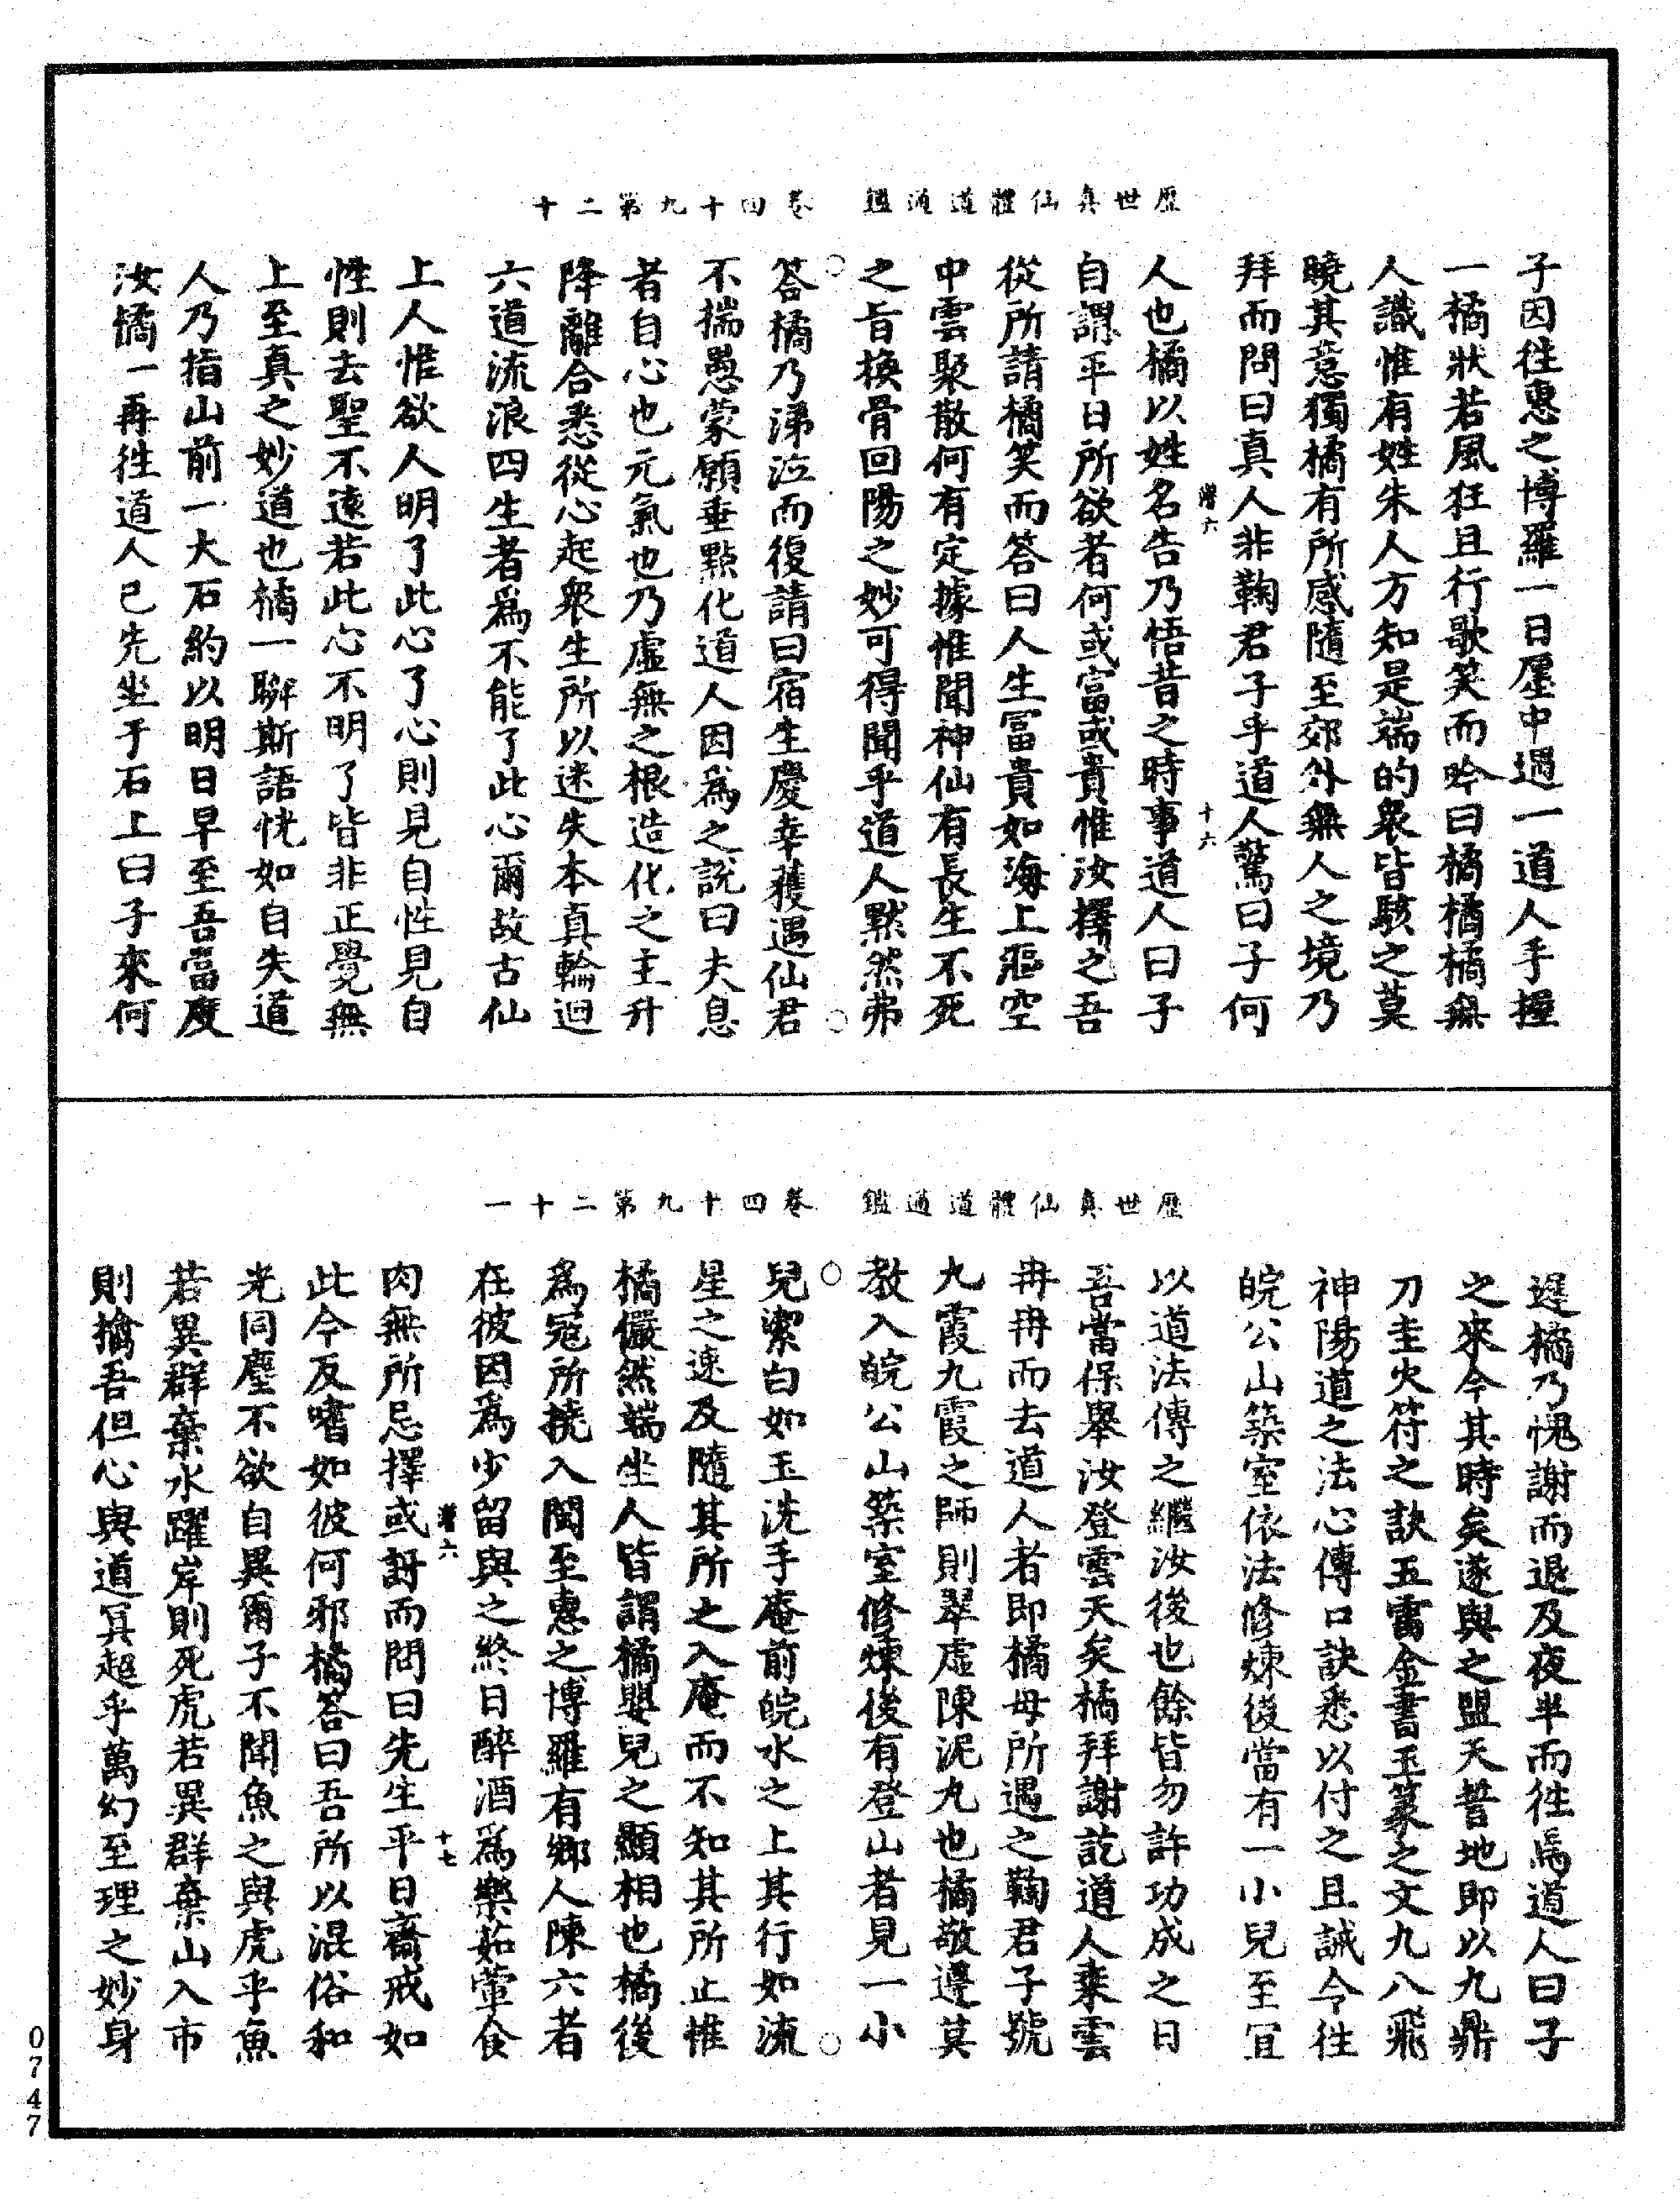 歷世真仙體道通鑑　卷四十九第二十
子因徃惠之博羅一日㕓中遇一道人手握
一橘狀若風狂且行歌笑而吟曰橘橘橘無
人識惟有姓朱人方知是端的衆皆駭之莫
曉其意獨橘有所感隨至郊外無人之境乃
拜而問曰真人非鞠君子乎道人驚曰子何
人也橘以姓名告乃悟昔之時事道人曰子
自謂平日所欲者何或富或貴惟汝擇之吾
從所請橘笑而答曰人生冨貴如海上漚空
中雲聚散何有定據惟聞神仙有長生不死
之旨換骨回陽之妙可得聞乎道人默然弗
答橘乃涕泣而復請曰宿生慶幸獲遇仙君
不揣愚蒙願垂點化道人因爲之說曰夫息
者自心也元氣也乃虛無之根造化之主升
降離合悉從心起衆生所以迷失本真輪迴
六道流浪四生者爲不能了此心爾故古仙
上人惟欲人明了此心了心則見自性見自
性則去聖不遠若此心不明了皆非正覺無
上至真之妙道也橘一聆斯語恍如自失道
人乃指山前一大石約以明日早至吾當度
汝橘一再徃道人已先坐于石上曰子來何
潜六
十六
歷世真仙體道通鑑　卷四十九第二十一
遲橘乃愧謝而退及夜半而徃焉道人曰子
之來今其時矣遂與之盟天誓地即以九鼎
刀圭火符之訣五雷金書玉篆之文九八飛
神陽道之法心傳口訣悉以付之且誡今徃
皖公山築室依法修煉後當有一小兒至冝
以道法傳之繼汝後也餘皆勿許功成之日
吾當保舉汝登雲天矣橘拜謝訖道人乘雲
冉冉而去道人者即橘母所遇之鞠君子號
九霞九霞之師則翠虛陳泥九也橘敬遵其
教入皖公山築室修煉後有登山者見一小
兒潔白如玉洗手庵前皖水之上其行如流
星之速及隨其所之入庵而不知其所止惟
橘儼然端坐人皆謂橘嬰兒之顯相也橘後
爲冦所撓入閩至惠之博羅有鄉人陳六者
在彼因爲少留與之終日醉酒爲樂茹葷食
肉無所忌擇或訝而問曰先生平日齋戒如
此今反嗜如彼何邪橘答曰吾所以混俗和
光同塵不欲自異爾子不聞魚之與虎乎魚
若異群棄水躍岸則死虎若異群棄山入市
則擒吾但心與道冥超乎萬幻至理之妙身
潜六
十七
0747